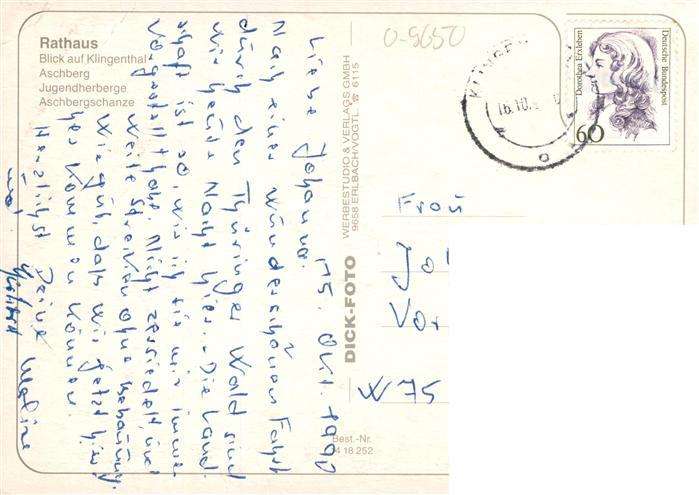 Rathaus
Blick auf Klingenthal
Aschberg
Jugendherberge
Aschbergschanze
15. Okt. 1990
Liebe Johanna.
Nach einer wunderschönen Fahrt
durch den Thüringer Wald sind
wir heute Nacht hier. Die Land-
schaft ist so, wie ich sie mir immer
vorgestellt habe. Nicht zersiedelt, und
weite Strecken ohne Bebauung.
Wie gut, daß wir jetzt hier-
her kommen können.
Herzlichst Deine
DICK-FOTO
WERBESTUDIO & VERLAGS GMBH
9658 ERLBACH/VOGTL. ☎ 6115
Best.-Nr.
4 18 252
0-9650
16.10.
Dorothea Erxleben
Deutsche Bundespost
60
Frau
Jo
Vor
W 75